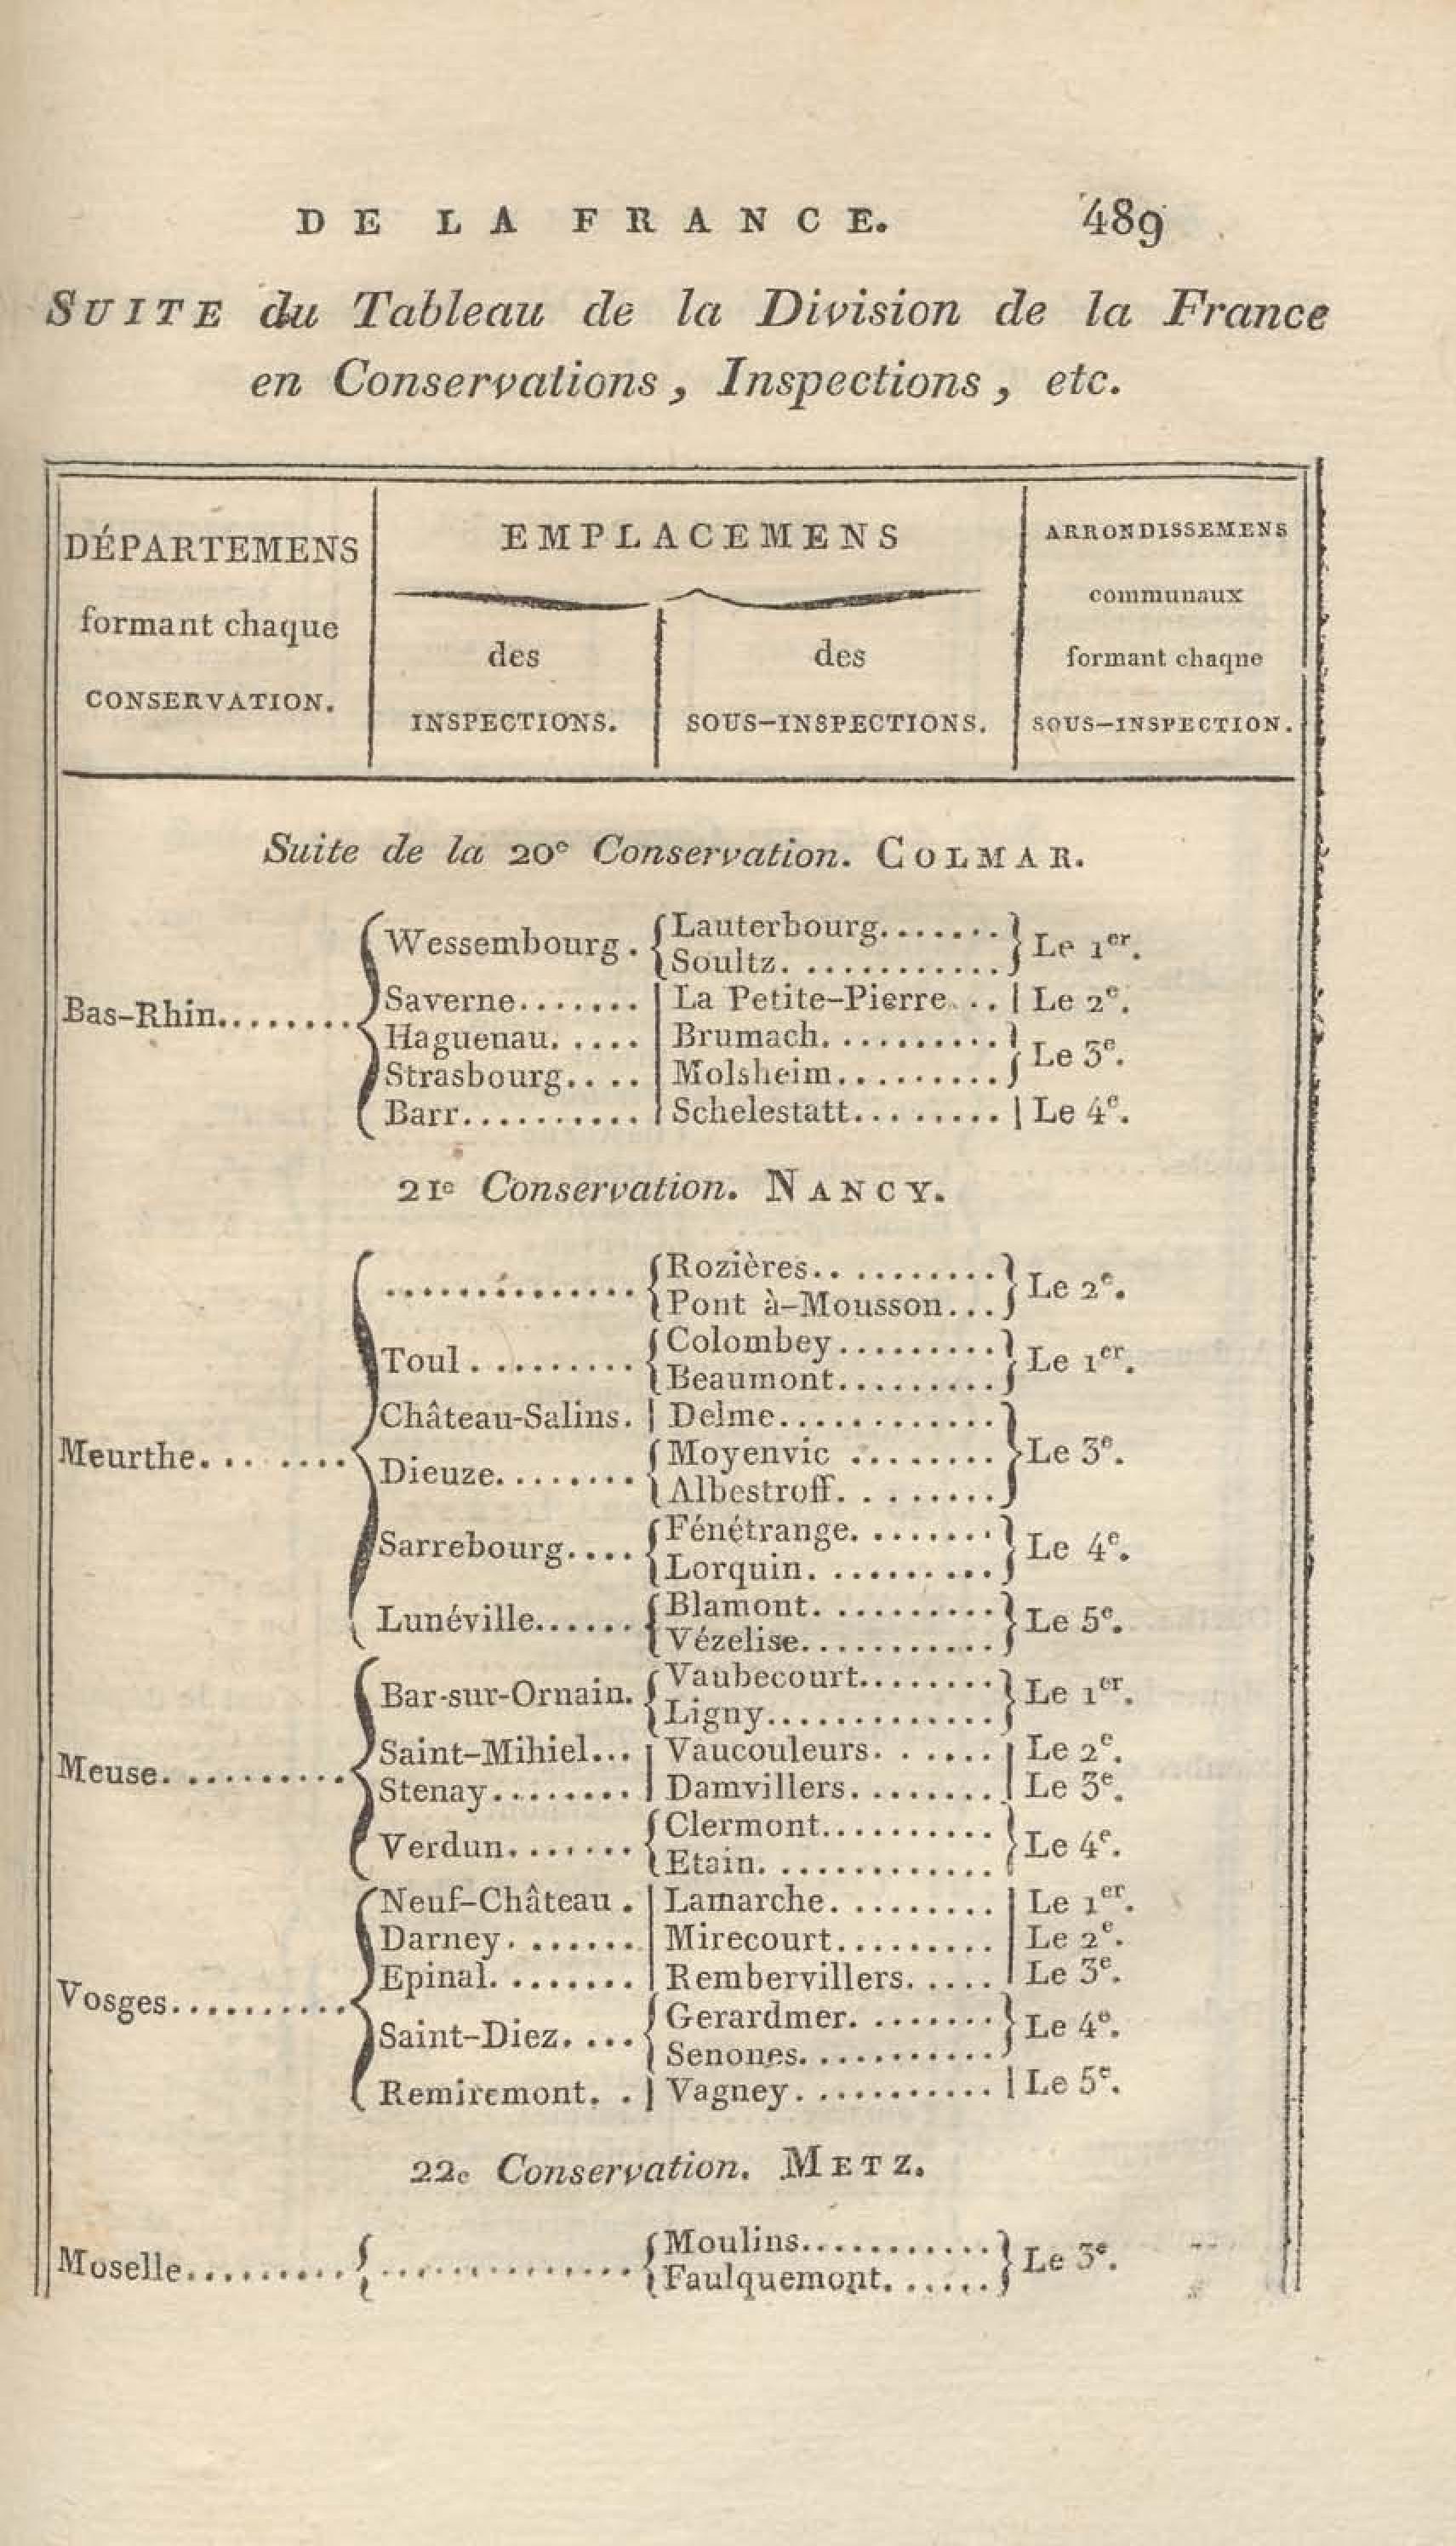 DE LA FRANCE. 489
SUITE du Tableau de la Division de la France
en Conservations, Inspections, etc.
DÉPARTEMENS
formant chaque
CONSERVATION.
EMPLACEMENS
des
INSPECTIONS.
des
SOUS-INSPECTIONS.
ARRONDISSEMENS
communaux
formant chaque
SOUS-INSPECTION.
Suite de la 20e Conservation. COLMAR.
Wessembourg. { Lauterbourg....... } Le 1er.
Soultz............
Bas-Rhin........
Saverne....... | La Petite-Pierre... | Le 2e.
Haguenau..... | Brumach.......... } Le 3e.
Strasbourg.... | Molsheim.........
Barr.......... | Schelestatt........ | Le 4e.
21e Conservation. NANCY.
.............. { Rozières.......... } Le 2e.
Pont à-Mousson...
Toul......... { Colombey......... } Le 1er.
Beaumont.........
Château-Salins. | Delme............ } Le 3e.
Meurthe.......
Dieuze........ { Moyenvic ........
Albestroff.........
Sarrebourg.... { Fénétrange........ } Le 4e.
Lorquin..........
Lunéville...... { Blamont.......... } Le 5e.
Vézelise...........
Bar-sur-Ornain. { Vaubecourt........ } Le 1er.
Ligny.............
Saint-Mihiel... | Vaucouleurs...... | Le 2e.
Meuse..........
Stenay........ | Damvillers........ | Le 3e.
Verdun....... { Clermont.......... } Le 4e.
Etain.............
Neuf-Château. | Lamarche......... | Le 1er.
Darney....... | Mirecourt......... | Le 2e.
Epinal........ | Rembervillers..... | Le 3e.
Vosges..........
Saint-Diez.... { Gerardmer........ } Le 4e.
Senones...........
Remiremont.. | Vagney........... | Le 5e.
22e Conservation. METZ.
Moselle......... { .............. { Moulins........... } Le 3e.
Faulquemont......